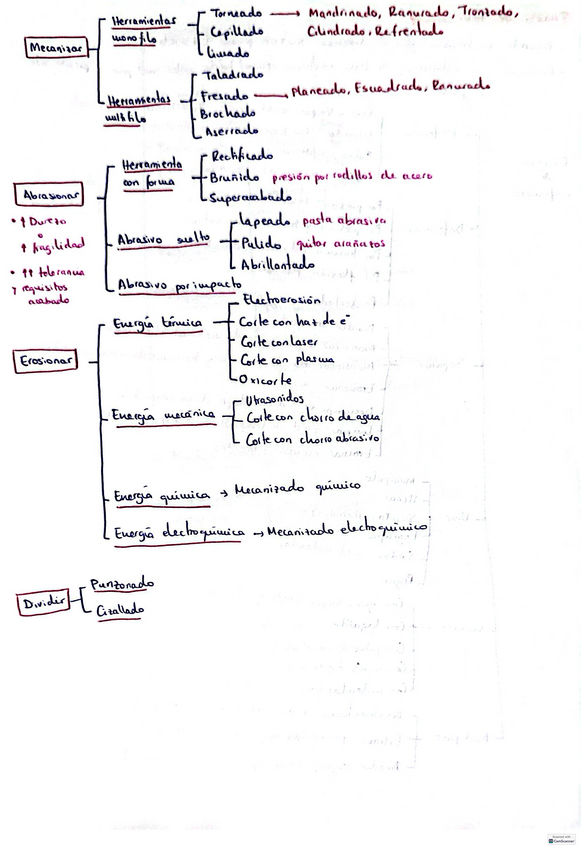 Mecanizar
Herramientas monofilo
Torneado → Mandrinado, Ranurado, Tronzado,
Cilindrado, Refrentado
Cepillado
Limado
Herramientas multifilo
Taladrado
Fresado → Planeado, Escuadrado, Ranurado
Brochado
Aserrado
Abrasionar
• ↑ Dureza
o
↑ fragilidad
• ↑↑ tolerancia
y requisitos
acabado
Herramienta
con forma
Rectificado
Bruñido presión por rodillos de acero
Superacabado
Abrasivo suelto
Lapeado pasta abrasiva
Pulido quitar arañazos
Abrillantado
Abrasivo por impacto
Erosionar
Energía térmica
Electroerosión
Corte con haz de e⁻
Corte con laser
Corte con plasma
Oxicorte
Energía mecánica
Utrasonidos
Corte con chorro de agua
Corte con chorro abrasivo
Energía química → Mecanizado químico
Energía electroquímica → Mecanizado electroquímico
Dividir
Punzonado
Cizallado
CamScanner